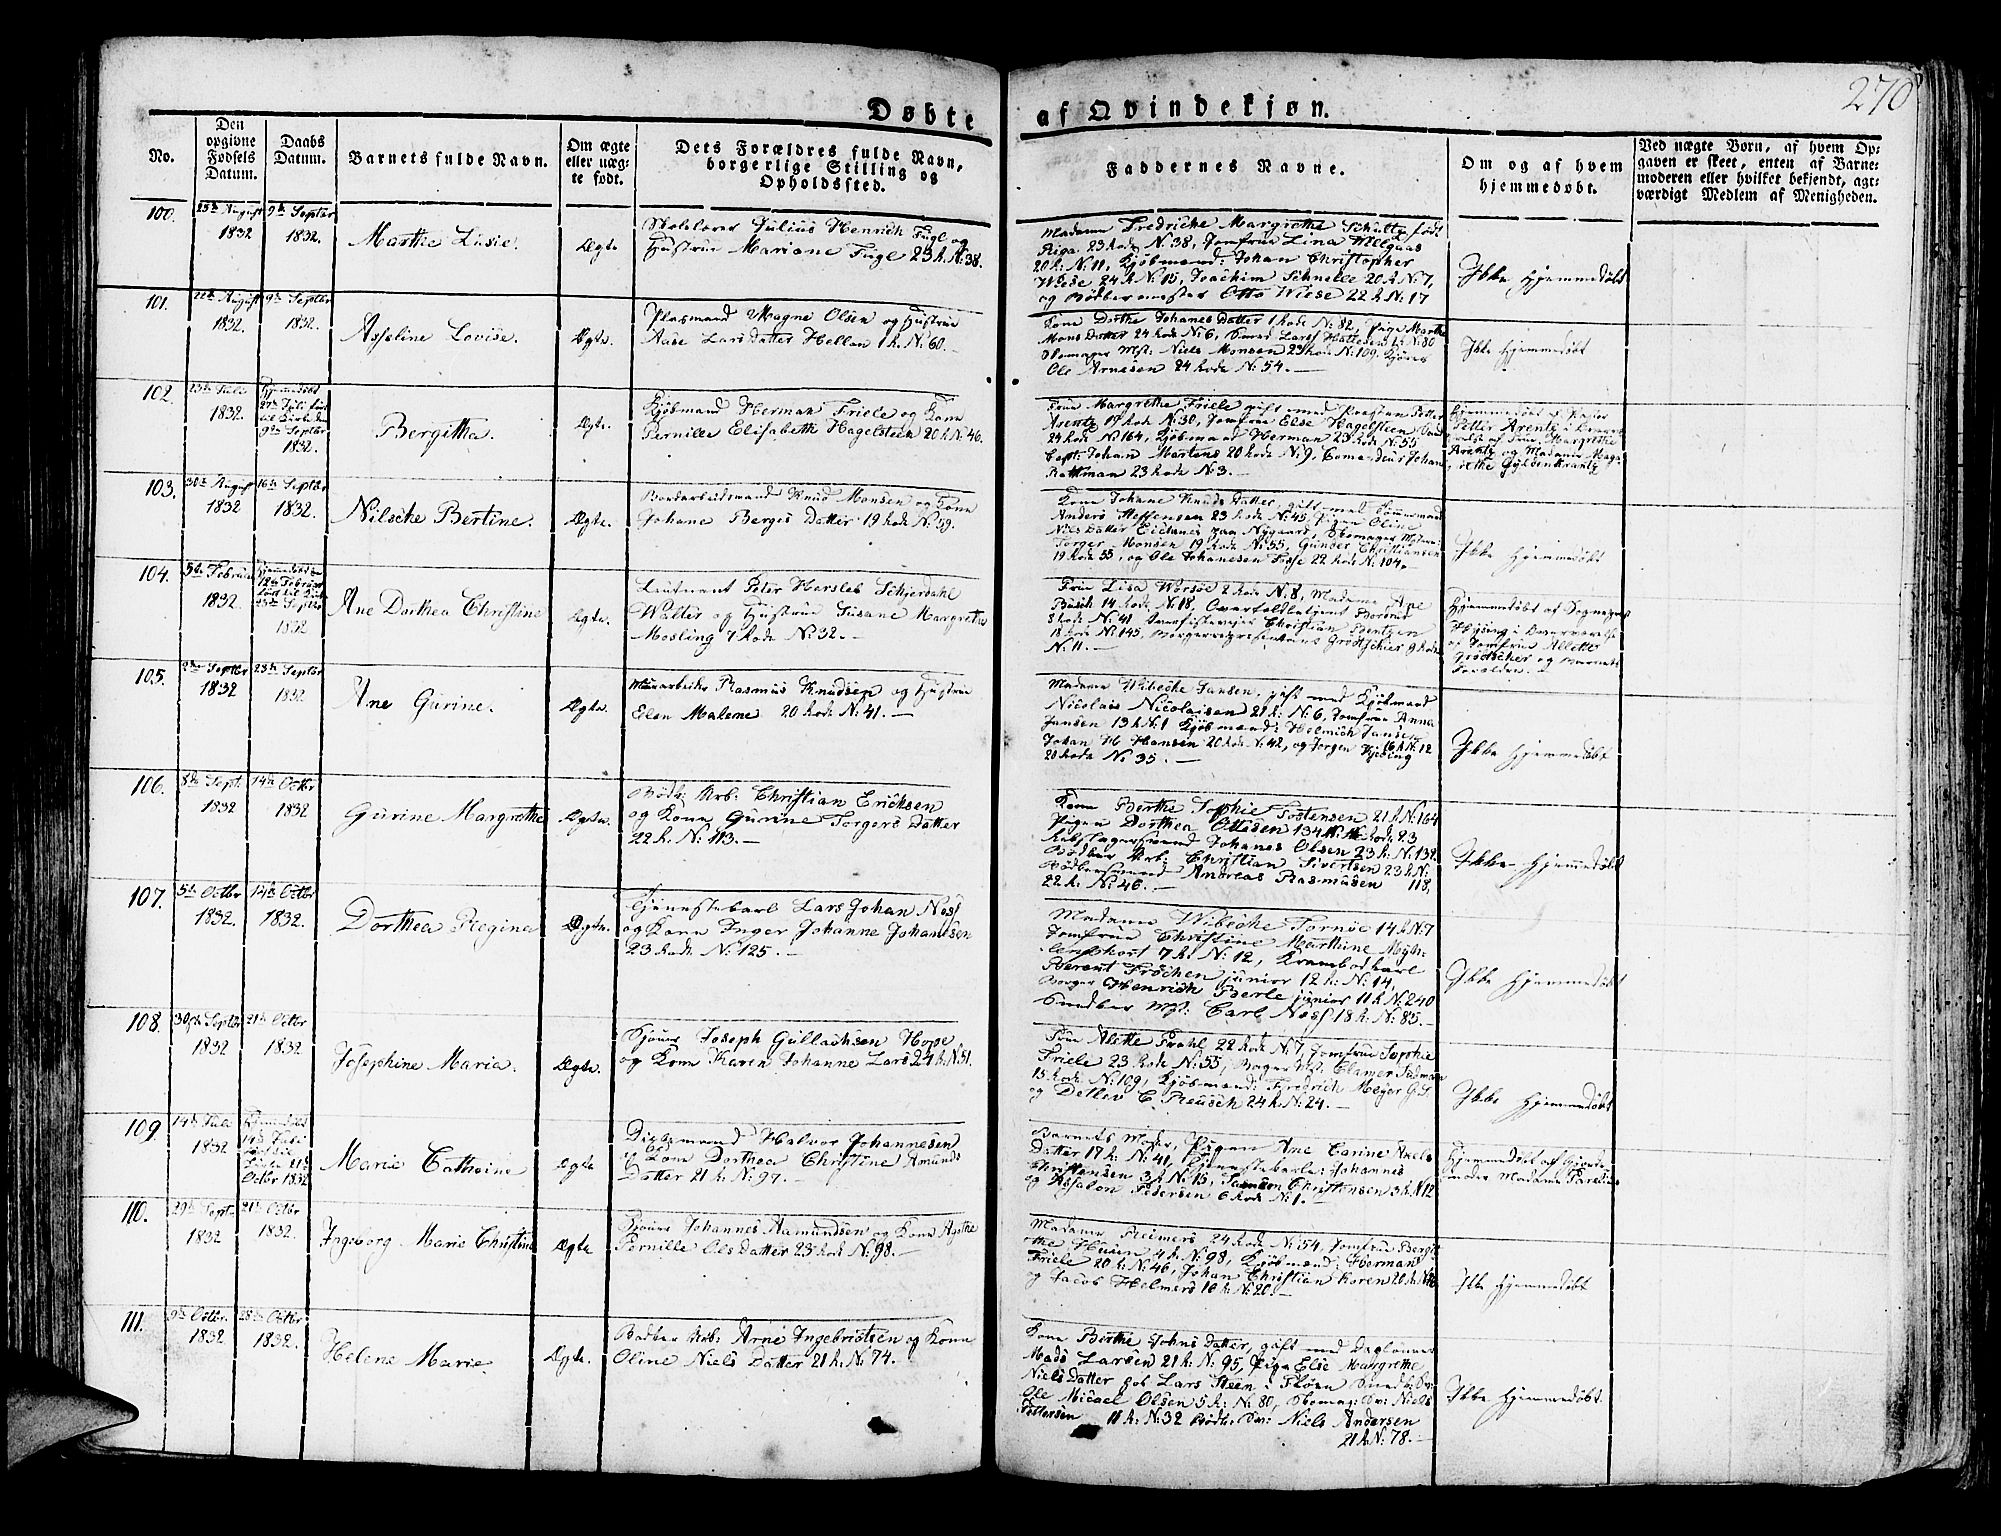 270
Døbte af Qvindekjøn.
No.
Den opgivne Fødsels Datum.
Daabs Datum.
Barnets fulde Navn.
Om ægte eller uægte født.
Dets Forældres fulde Navn, borgerlige Stilling og Opholdssted.
Faddernes Navne.
Om og af hvem hjemmedøbt.
Ved uægte Børn, af hvem Opgaven er skeet, enten af Barnemoderen eller hvilket bekjendt, agtværdigt Medlem af Menigheden.
100.
25de August 1832
9de Septbr 1832.
Marthe Lusie.
Ægte
Skolelærer Julius Henrich Fugl og
Hustrue Mariane Fugl 23 R. N: 38.
Madame Fredricke Margrethe Schultz født
Riga 23 Rode N: 38, Jomfrue Lina Wellgaas
20 R: N: 11, Kjøbmænd: Johan Christopher
Wiese 24 R N: 15, Joachim Schnelle 20 R N: 7,
og Bødkermester Otto Wiese 22 R N: 17
Ikke Hjemmedøbt
101.
22de August 1832
9de Septbr 1832.
Asseline Lovise.
Ægte.
Pladsmand Magne Olsen og Hustrue
Aase Lars Datter Hellen 1 R. N: 60.
Kone Dorthe Johanes Datter 1 Rode N: 82, Pige Marthe
Mons Datter 24 Rode N: 6, Lars Hattesen 12 N: 80
Skomager Mst: Niels Monsen 23 Rode N: 109.
Ole Arnesen 24 Rode N: 54.
Ikke Hjemmedøbt
102.
23de Juli 1832.
Hjemmedøbt
27de Juli
9de Septbr
1832.
Bergitha.
Ægte.
Kjøbmand Herman Friele og Kone
Pernille Elisabeth Hagelsteen 20 R: N: 46.
Frue Margrethe Friele gift med Petter
Arentz 19 Rode N: 38, Jomfrue Else Hagelsteen
24 Rode N: 164, Kjøbmænd Herman 23 Rode N: 55
Capt: Johan Martens 20 Rode N: 9, Johan
Rattman 23 Rode N: 3.
Hjemmedøbt af Pastor
Petter Arentz i Overværelse
af Frue Margrethe
Arentz og Madame Margrethe
Gyldenkrantz
103.
30te August 1832
16de Septbr 1832.
Nilsche Bertine.
Ægte.
Knud Monsen og Kone
Johane Berges Datter 19 Rode N: 59.
Kone Johane Knuds Datter gift med
Anders Steffensen 23 Rode N: 45, Pigen Oline
Niels Datter Nygaard, Skomager
Torger Monsen 19 Rode N: 55, Gunder Christiansen
19 Rode 55, og Ole Johanesen Fosse 22 Rode N: 104.
Ikke Hjemmedøbt
104.
5te Februar 1832.
Hjemmedøbt
12te Februar
23de Septbr
1832
Ane Dorthea Christine
Ægte.
Leutnant Peter Hersleb Schjerdahl
Walter og Hustrue Susane Margrethe
Mosling 7 Rode N: 32.
Frue Lisa Worsøe 2 Rode N: 8, Madame Ane
Busch 14 Rode N: 18,
8 Rode N: 41 Christian Bentzen
18 Rode N: 145, Borgerrepresentant Grødtschier 9 Rode
N: 11.
Hjemmedøbt af Sognepræst
Hysing i Overværelse
af Jomfrue Alette
Grødtscher og Barnets
Forældre.
105.
Septbr 1832
23de Septbr 1832
Ane Gurine.
Ægte.
Rasmus Knudsen og Hustrue
Elen Malene 20 Rode N: 41.
Madame Wibecke Jansen, gift med Kjøbmand
Nicolais Nicolaisen 21 R: N: 6, Jomfrue Anna
Jansen 13 R N: 1 Kjøbmænd: Helmich Jansen
Johan H Hansen 20 Rode N: 42, og Jørgen Kjøbing 16 R N: 12
20 Rode N: 35.
Ikke Hjemmedøbt
106.
8de Sept: 1832
14de Octbr 1832
Gurine Margrethe
Ægte.
Bødk: Arb: Christian Ericksen
og Kone Gurine Torgers Datter
22 R. N: 113.
Kone Berthe Sophie Tostensen 21 R N: 164
Pigen Dorthea Ottesen
Johanes Olsen 23 R: N: 132
Bødker Arb: Christian Sivertsen 23 R N:
Andreas Rasmusen 118,
22 R: N: 46.
Ikke Hjemmedøbt
107.
5te Octbr 1832.
14de Octbr 1832.
Dorthea Regine
Ægte.
Tjenestekarl Lars Johan Ness
og Kone Inger Johanne Johansen
23 Rode N: 125.
Madame Wibecke Tornøe 14 R N: 7
Jomfrue Christine Marthine
7 R: N: 12, Krambodkarl
Berent Frøchen junior 12 R: N: 14,
Borger Henrich Berle junior 11 R N: 240
Snedker Mst: Carl Ness 18 R: N: 85.
Ikke Hjemmedøbt
108.
30te Septbr 1832
21de Octbr 1832
Josephine Maria.
Ægte.
Joseph Gullachsen Hope
og Kone Karen Johanne Lars 24 R. N: 51.
Frue Alette Prahl 22 Rode N: 7, Jomfrue Sophie
Friele 23 Rode N: 55, Borger Mst: Clamer
15 Rode N: 109, Kjøbmænd: Fredrich Meyer G. S.
og Detlev C. Reusch 24 R: N: 24.
Ikke Hjemmedøbt
109.
14de Juli 1832
Hjemmedøbt
14de Juli
21de
Octbr 1832
Marie Cathrine
Ægte
Halvor Johannesen
og Kone Dorthea Christine Amunds
Datter 21 R: N: 97.
Barnets Moder, Pigen Ane Carine Niels
Datter 17 R: N: 41, Tjenestekarle: Johannes
Christensen 3 R N: 15, Christensen 3 R. N 12
og Assalon Pedersen 6 Rode N: 1.
Hjemmedøbt af
Madame
110.
29de Septr 1832
21de Octbr 1832.
Ingeborg Marie Christine
Ægte
Johannes Aamundsen og Kone Agethe
Pernille Ols Datter 23 Rode N: 98.
Madame Reimers 24 Rode N: 54, Jomfrue
4 R: N: 98, Kjøbmænd: Herman
Friele 20 R: N: 46, Johan Christian Koren 20 R N:
og Jacob Helmers 16 R N: 20.
Ikke Hjemmedøbt
111.
9de Octbr. 1832
28de Octbr 1832.
Helene Marie
Ægte.
Bødker Arb: Arne Ingebrigtsen og Kone
Oline Niels Datter 21 R: N: 74.
Kone Berthe Johns Datter, gift med Dagløner
Mads Larsen 21 R: N: 95, Pige Else Margrethe
Niels Datter hos Lars Steen i Floen
Ole Micael Olsen 5 R: N: 80, Niels
Tostensen 11 R: N: 32 Bødk: Niels Andersen
21 R N: 78.
Ikke Hjemmedøbt.